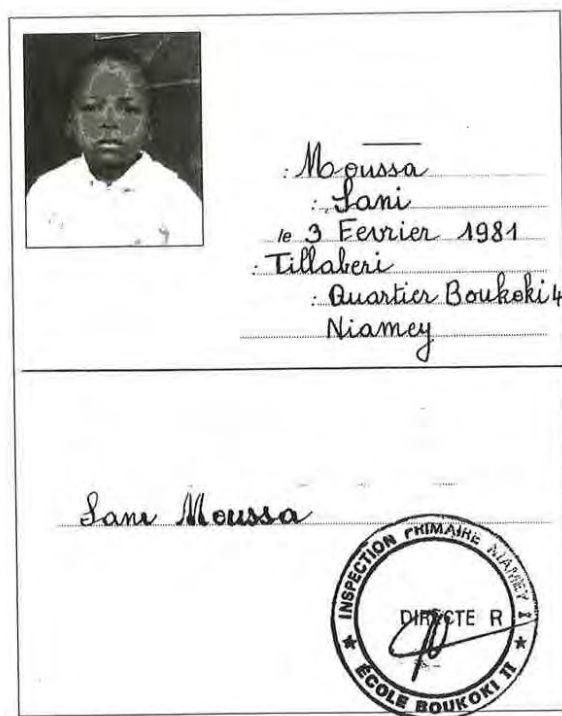 : Moussa
: Sani
le 3 Fevrier 1981
: Tillaberi
: Quartier Boukoki 4
Niamey
Sani Moussa
INSPECTION PRIMAIRE NIAMEY I
DIRECTE R
★ ÉCOLE BOUKOKI II ★